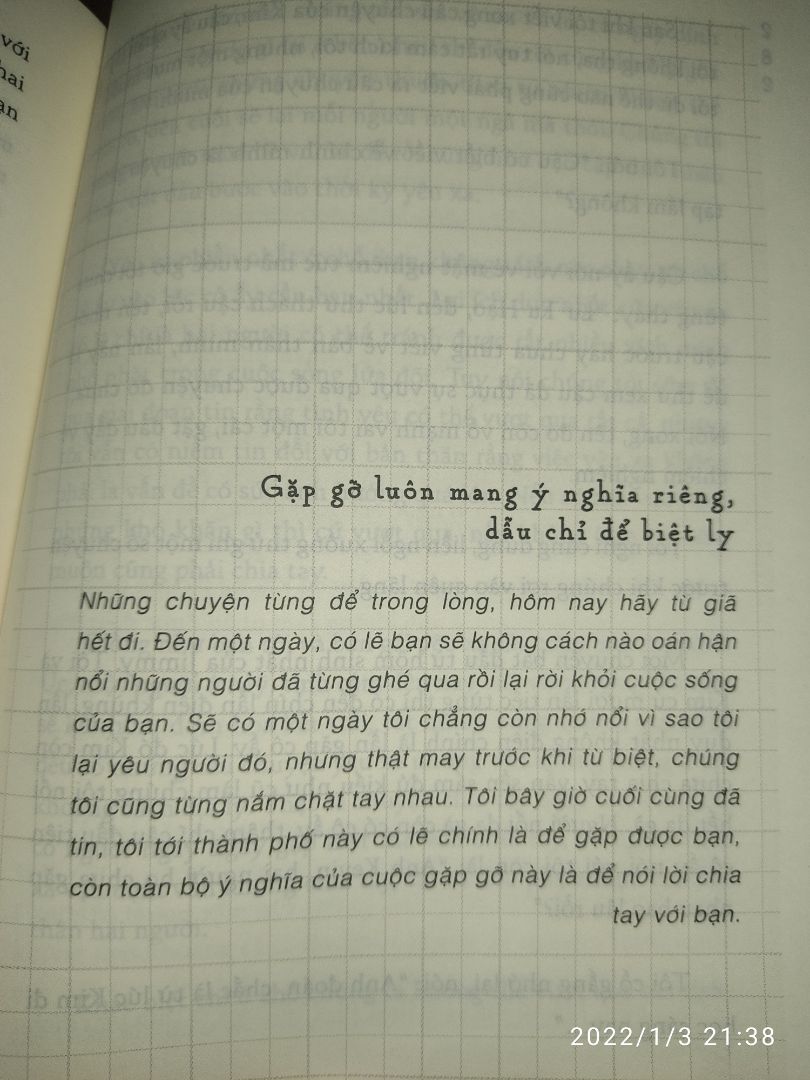 với
hai
Gặp gỡ luôn mang ý nghĩa riêng,
dẫu chỉ để biệt ly
Những chuyện từng để trong lòng, hôm nay hãy từ giã
hết đi. Đến một ngày, có lẽ bạn sẽ không cách nào oán hận
nổi những người đã từng ghé qua rồi lại rời khỏi cuộc sống
của bạn. Sẽ có một ngày tôi chẳng còn nhớ nổi vì sao tôi
lại yêu người đó, nhưng thật may trước khi từ biệt, chúng
tôi cũng từng nắm chặt tay nhau. Tôi bây giờ cuối cùng đã
tin, tôi tới thành phố này có lẽ chính là để gặp được bạn,
còn toàn bộ ý nghĩa của cuộc gặp gỡ này là để nói lời chia
tay với bạn.
2022/1/3 21:38